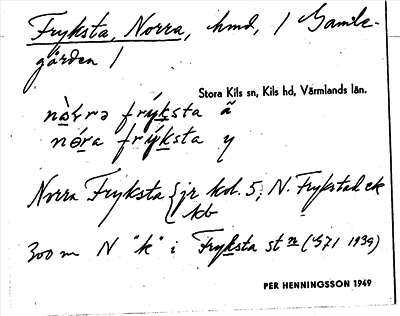 Fryksta, Norra, hmd, / Gamle-
gården /
Stora Kils sn, Kils hd, Värmlands län.
nòrrə frýksta ã
nóra frýksta y
Norra Fryksta { jr kol. 5; N. Frykstad ek
kb
300 m N "k" i Fryksta st (§71 1939)
PER HENNINGSSON 1949